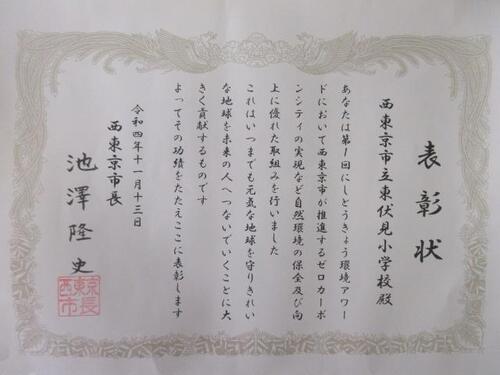 表彰状
西東京市立東伏見小学校殿
あなたは第1回にしとうきょう環境アワー
ドにおいて西東京市が推進するゼロカーボ
ンシティの実現など自然環境の保全及び向
上に優れた取組みを行いました
これはいつまでも元気な地球を守りきれい
な地球を未来の人へつないでいくことに大
きく貢献するものです
よってその功績をたたえここに表彰します
令和四年十一月十三日
西東京市長
池澤隆史
西東京
市長